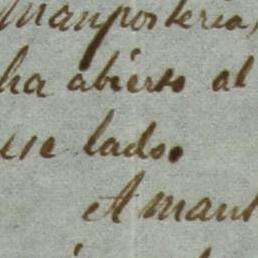 Mamposteria,
ha abierto al
ese lado.
A mant